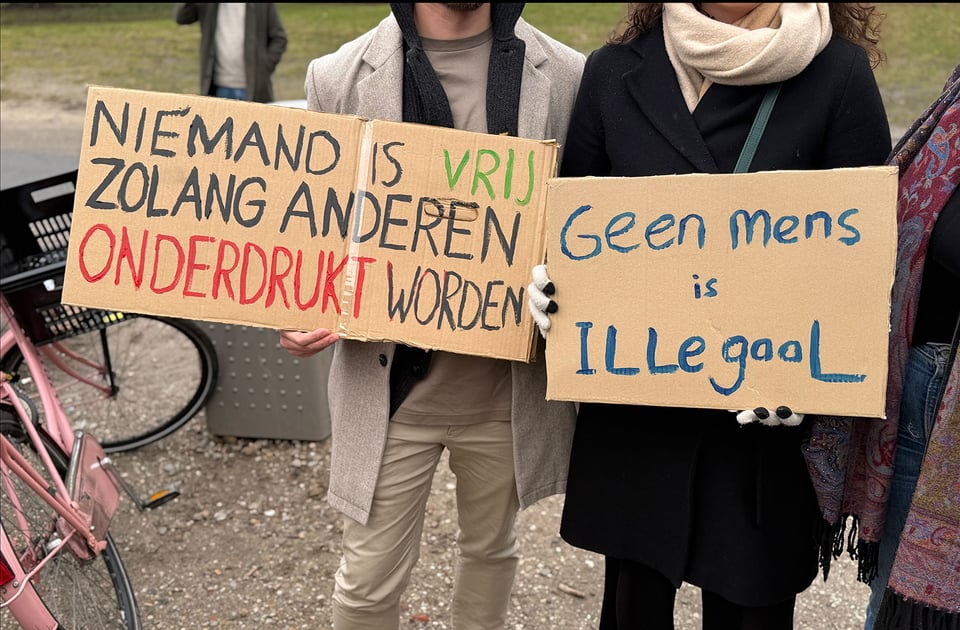 NIEMAND IS VRIJ
ZOLANG ANDEREN
ONDERDRUKT WORDEN
Geen mens
is
ILLegaaL